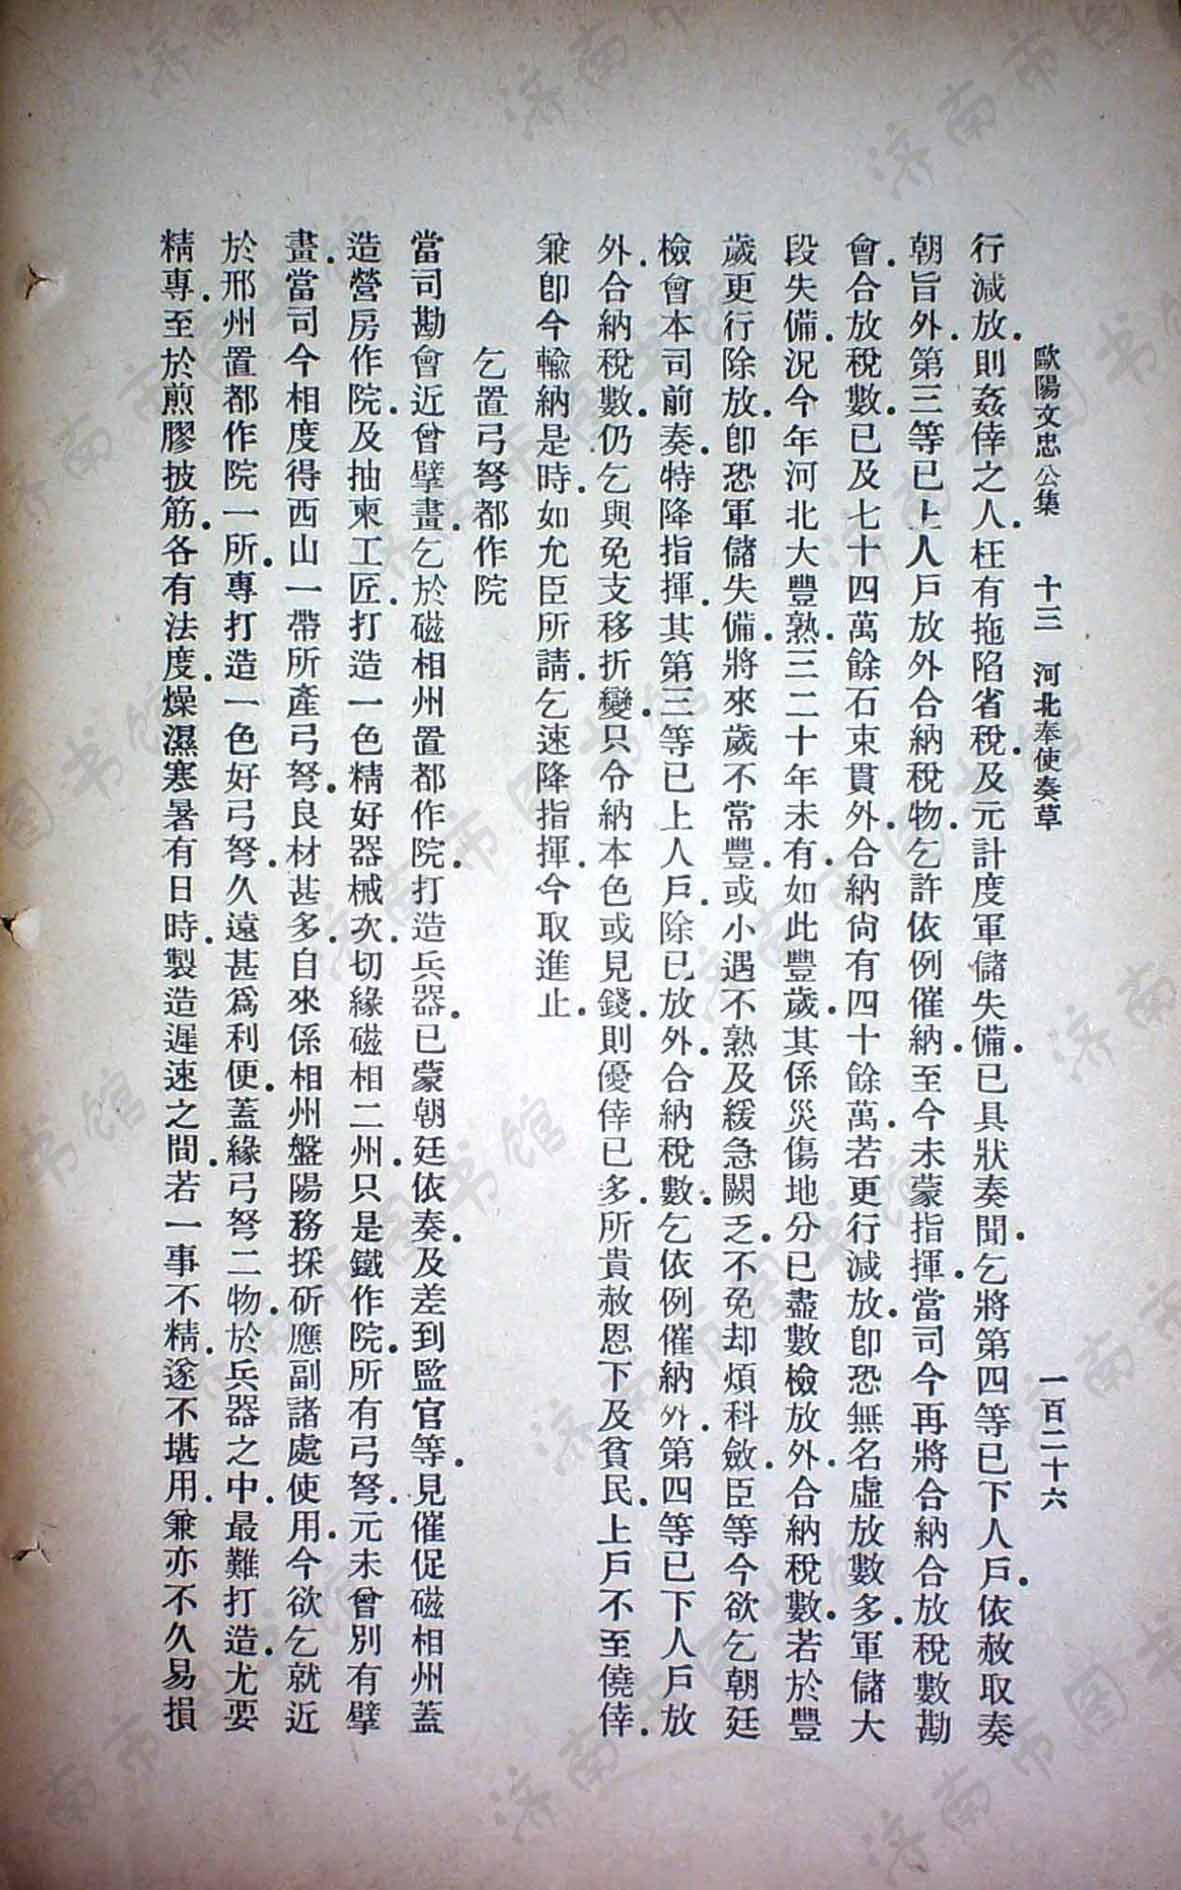 歐陽文忠公集 十三 河北奉使奏草 一百二十六
行減放．則姦倖之人．枉有拖陷省稅．及元計度軍儲失備．已具狀奏聞．乞將第四等已下人戶．依赦取奏
朝旨外．第三等已上人戶放外合納稅物．乞許依例催納．至今未蒙指揮．當司今再將合納合放稅數勘
會．合放稅數．已及七十四萬餘石束貫外．合納尙有四十餘萬．若更行減放．卽恐無名虛放數多．軍儲大
段失備．況今年河北大豐熟．三二十年未有．如此豐歲．其係災傷地分．已盡數檢放外．合納稅數．若於豐
歲更行除放．卽恐軍儲失備．將來歲不常豐．或小遇不熟．及緩急闕乏．不免却煩科斂．臣等今欲乞朝廷
檢會本司前奏．特降指揮．其第三等已上人戶．除已放外．合納稅數．乞依例催納外．第四等已下人戶放
外．合納稅數．仍乞與免支移折變．只令納本色或見錢．則優倖已多．所貴赦恩下及貧民．上戶不至僥倖．
兼卽今輸納是時．如允臣所請．乞速降指揮．今取進止．
乞置弓弩都作院
當司勘會近曾擘畫．乞於磁相州置都作院．打造兵器．已蒙朝廷依奏．及差到監官等．見催促磁相州蓋
造營房作院．及抽柬工匠．打造一色精好器械次．切緣磁相二州．只是鐵作院．所有弓弩．元未曾別有擘
畫．當司今相度得西山一帶所產弓弩．良材甚多．自來係相州盤陽務採斫應副諸處使用．今欲乞就近
於邢州置都作院一所．專打造一色好弓弩．久遠甚爲利便．蓋緣弓弩二物．於兵器之中．最難打造．尤要
精專．至於煎膠披筋．各有法度．燥濕寒暑有日時．製造遲速之間．若一事不精．遂不堪用．兼亦不久易損